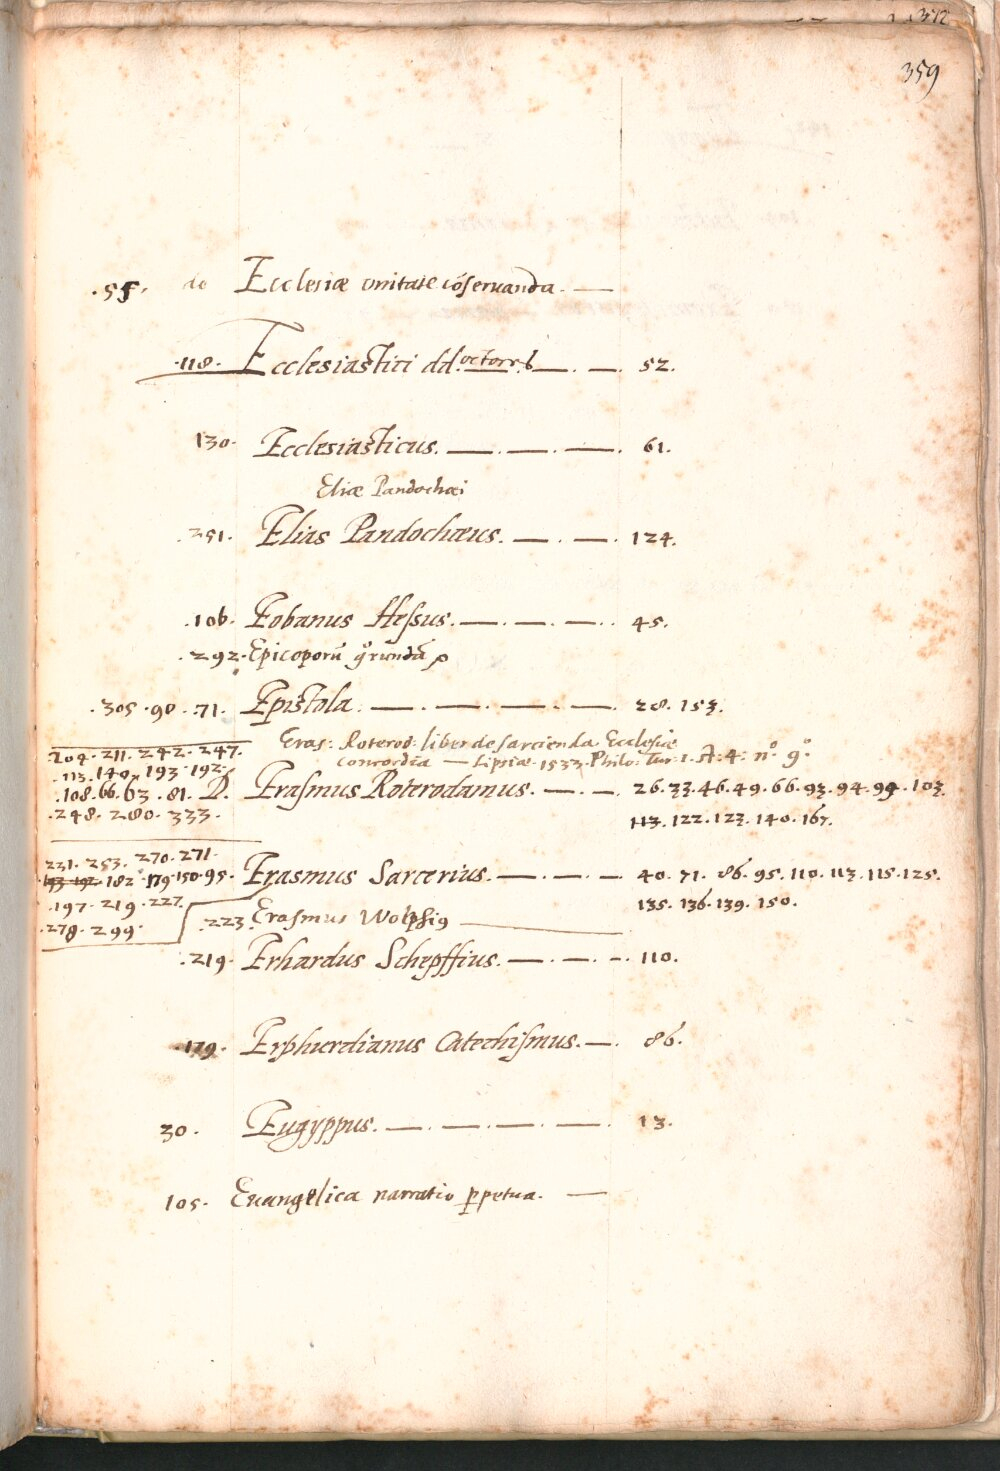 372
359
.55. de Ecclesiæ vnitate cõseruanda. —
.118. Ecclesiastici dd.octores — . — . 52.
130. Ecclesiasticus. — . — . — . 61.
Eliæ Pandochæi
.251. Elias Pandochæus. — . — . 124.
.106. Eobanus Hessus. — . — . — . . 45.
.292. Epicoporũ
.305 .90 . 71. Epistola. — . — . — . — . 28. 153.
Eras: Roterod: liber de sarcienda Ecclesiæ
concordia — Lipsiæ. 1533. Philo: Tur: 1. A: 4: nº 9º.
.204. 211. 242. 247.
.113. 140. 193. 192.
.108. 66. 63 . 81. D. Erasmus Roterodamus. — . — . 26. 33. 46. 49. 66. 93. 94. 99. 103.
.248. 280. 333. 113. 122. 123. 140. 167.
231. 253. 270. 271.
193 192. 182. 179. 150. 95. Erasmus Sarcerius. — . — . 40. 71. 86. 95. 110. 113. 115. 125.
.197. 219. 227. 135. 136. 139. 150.
.278. 299. .223. Erasmus Wolphig —
.219. Erhardus Schepffius. — . — . – . 110.
.179. Erphurdianus Catechismus. — . 86.
30. Eugyppus. — . — . — . — . 13.
105. Euangelica narratio ppetua. —